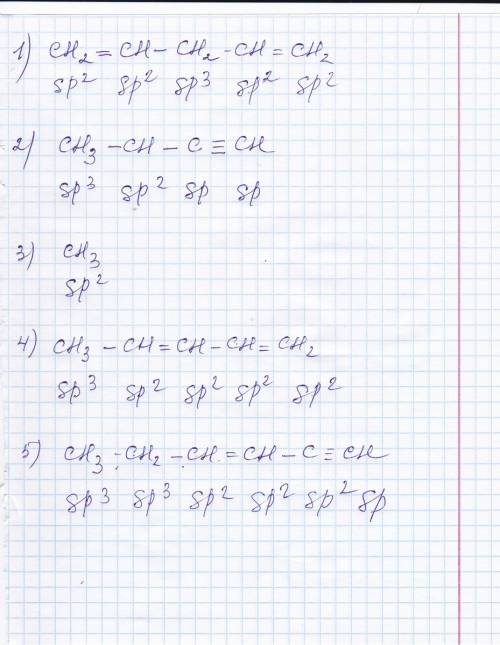 1) CH₂ = CH – CH₂ – CH = CH₂
sp² sp² sp³ sp² sp²
2) CH₃ – CH – C ≡ CH
sp³ sp² sp sp
3) CH₃
sp²
4) CH₃ – CH = CH – CH = CH₂
sp³ sp² sp² sp² sp²
5) CH₃ – CH₂ – CH = CH – C ≡ CH
sp³ sp³ sp² sp² sp² sp